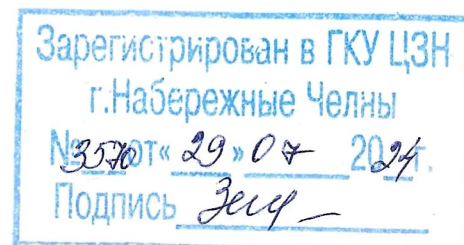 Зарегистрирован в ГКУ ЦЗН
г.Набережные Челны
№3570от« 29 »07 2024г.
Подпись